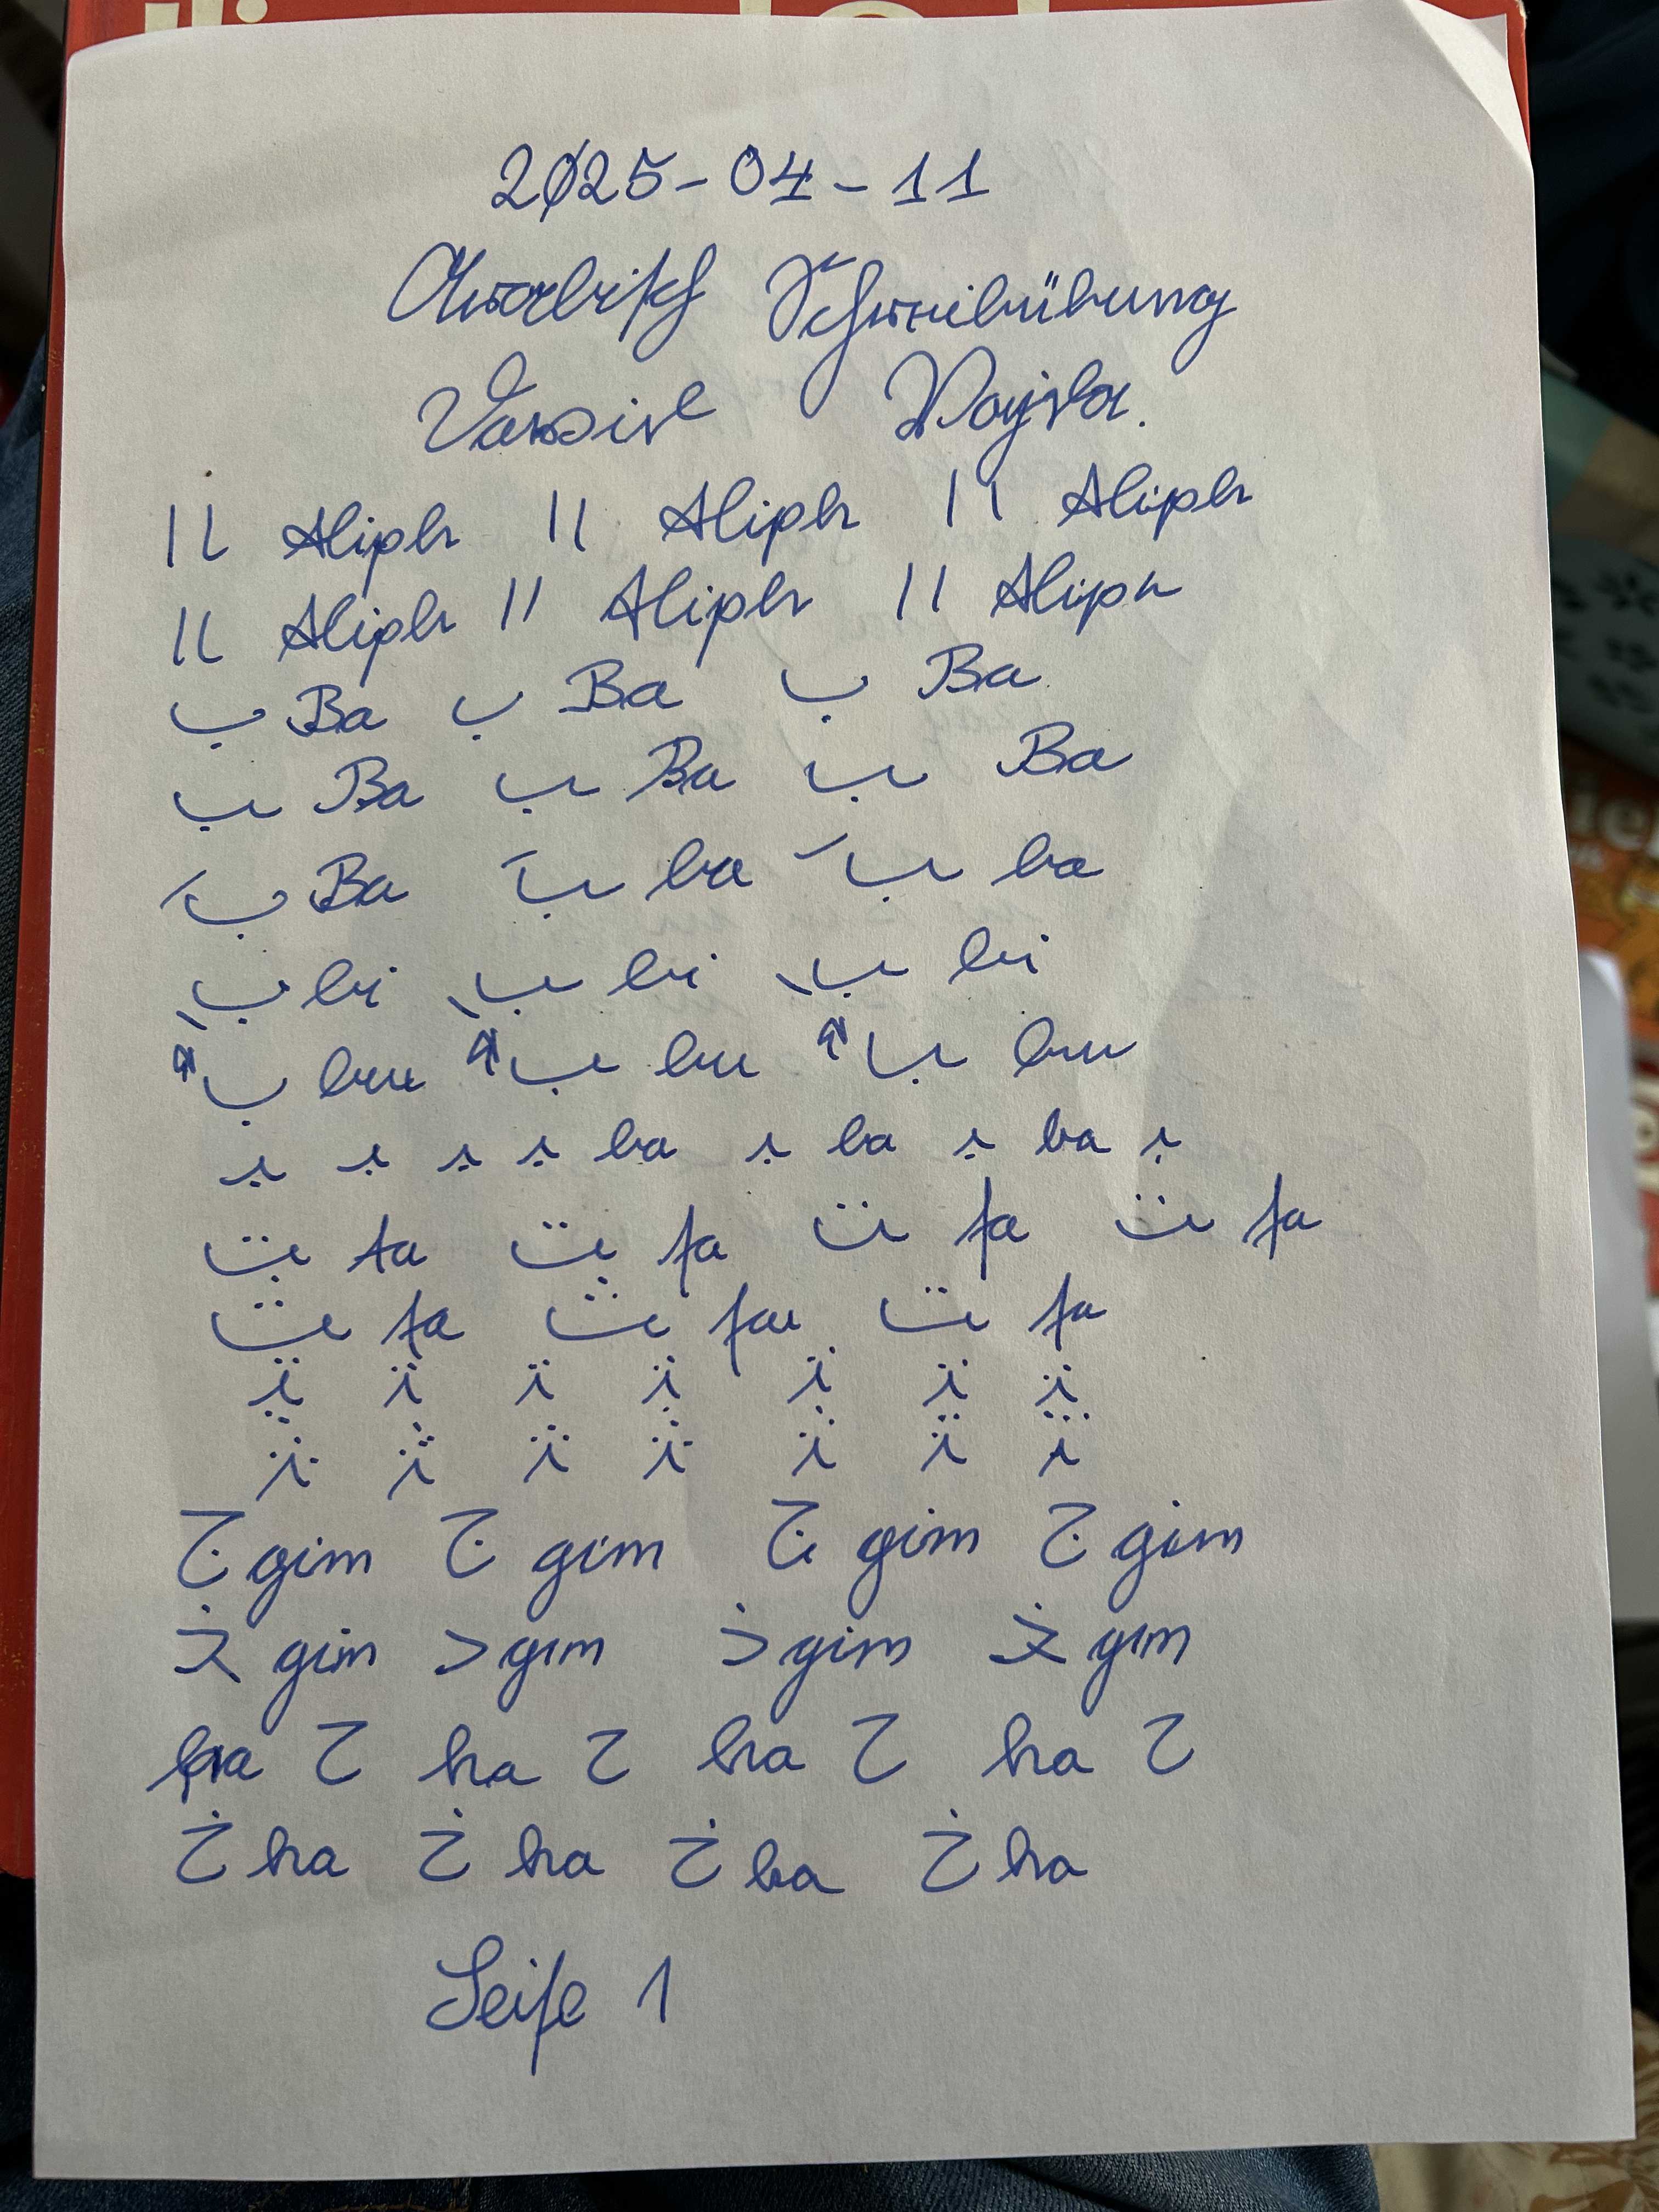 2025-04-11
Arabisch Schreibübung
اا Aliph اا Aliph اا Aliph
اا Aliph اا Aliph اا Aliph
ب Ba ب Ba ب Ba
ب Ba ب Ba ب Ba
بَ Ba بَ ba بَ ba
بِ bi بِ bi بِ bi
بُ bu بُ bu بُ bu
بـ بـ بـ بـ ba بـ ba بـ ba بـ
ت ta ت ta ت ta ت ta
ت ta ت ta ت ta
تـ تـ تـ تـ تـ تـ تـ
ج gim ج gim ج gim ج gim
gim gim gim gim
ha ح ha ح ha ح ha ح
خ ha خ ha خ ha خ ha
Seite 1